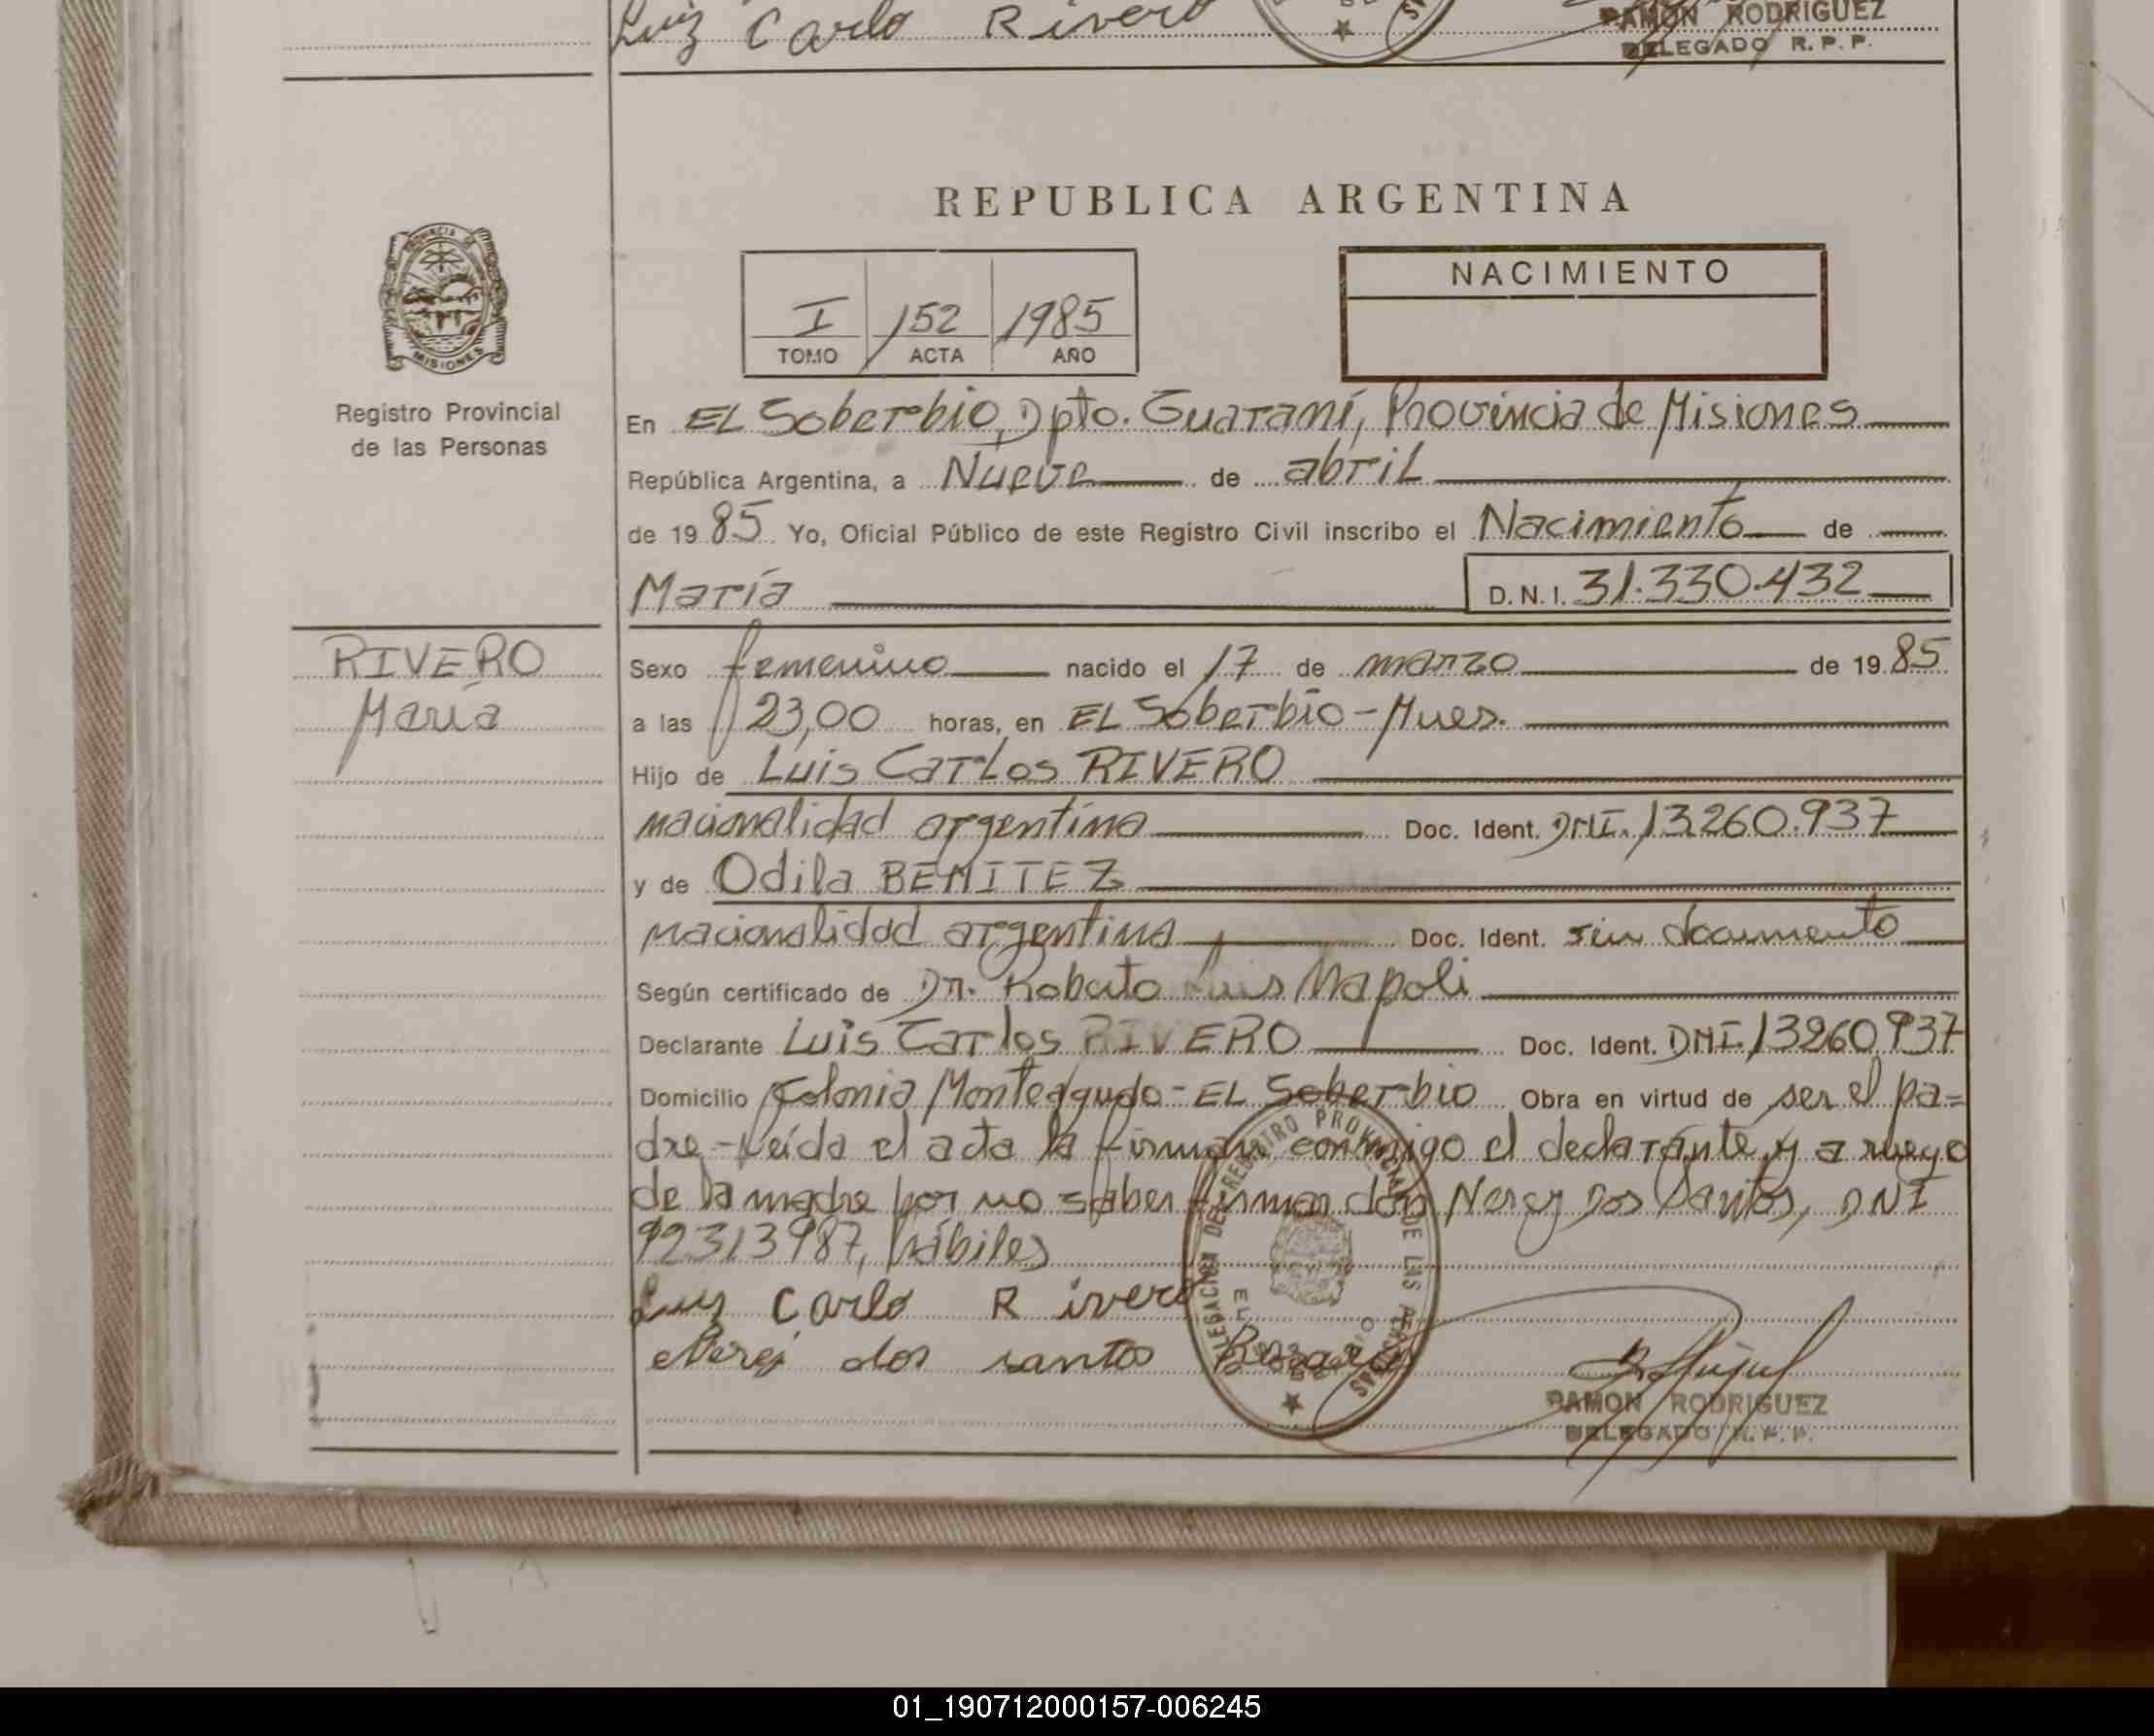 Luiz Carlo Rivero
RAMON RODRIGUEZ
DELEGADO R. P. P.
REPUBLICA ARGENTINA
PROVINCIA DE
MISIONES
I 152 1985
TOMO ACTA AÑO
NACIMIENTO
Registro Provincial
de las Personas
En EL Soberbio, Dpto. Guaraní, Provincia de Misiones
República Argentina, a Nueve de abril
de 1985 Yo, Oficial Público de este Registro Civil inscribo el Nacimiento de
María D.N.I. 31.330.432
RIVERO
María
Sexo femenino nacido el 17 de marzo de 1985
a las 23,00 horas, en EL Soberbio-Mnes.
Hijo de Luis Carlos RIVERO
nacionalidad argentina Doc. Ident. DNI. 13260.937
y de Odila BENITEZ
nacionalidad argentina Doc. Ident. sin documento
Según certificado de Dr. Roberto Luis Napoli
Declarante Luis Carlos RIVERO Doc. Ident. DNI. 13260937
Domicilio Colonia Monteagudo-EL Soberbio Obra en virtud de ser el pa=
dre-Leída el acta la firman conmigo el declarante y a ruego
de la madre por no saber firmar don Nerey Dos Santos, DNI
92313987, hábiles
Luis Carlo Rivero
Nerei dos santos
DELEGACION DEL REGISTRO PROVINCIAL DE LAS PERSONAS
EL SOBERBIO
RAMON RODRIGUEZ
DELEGADO R. P. P.
01_190712000157-006245